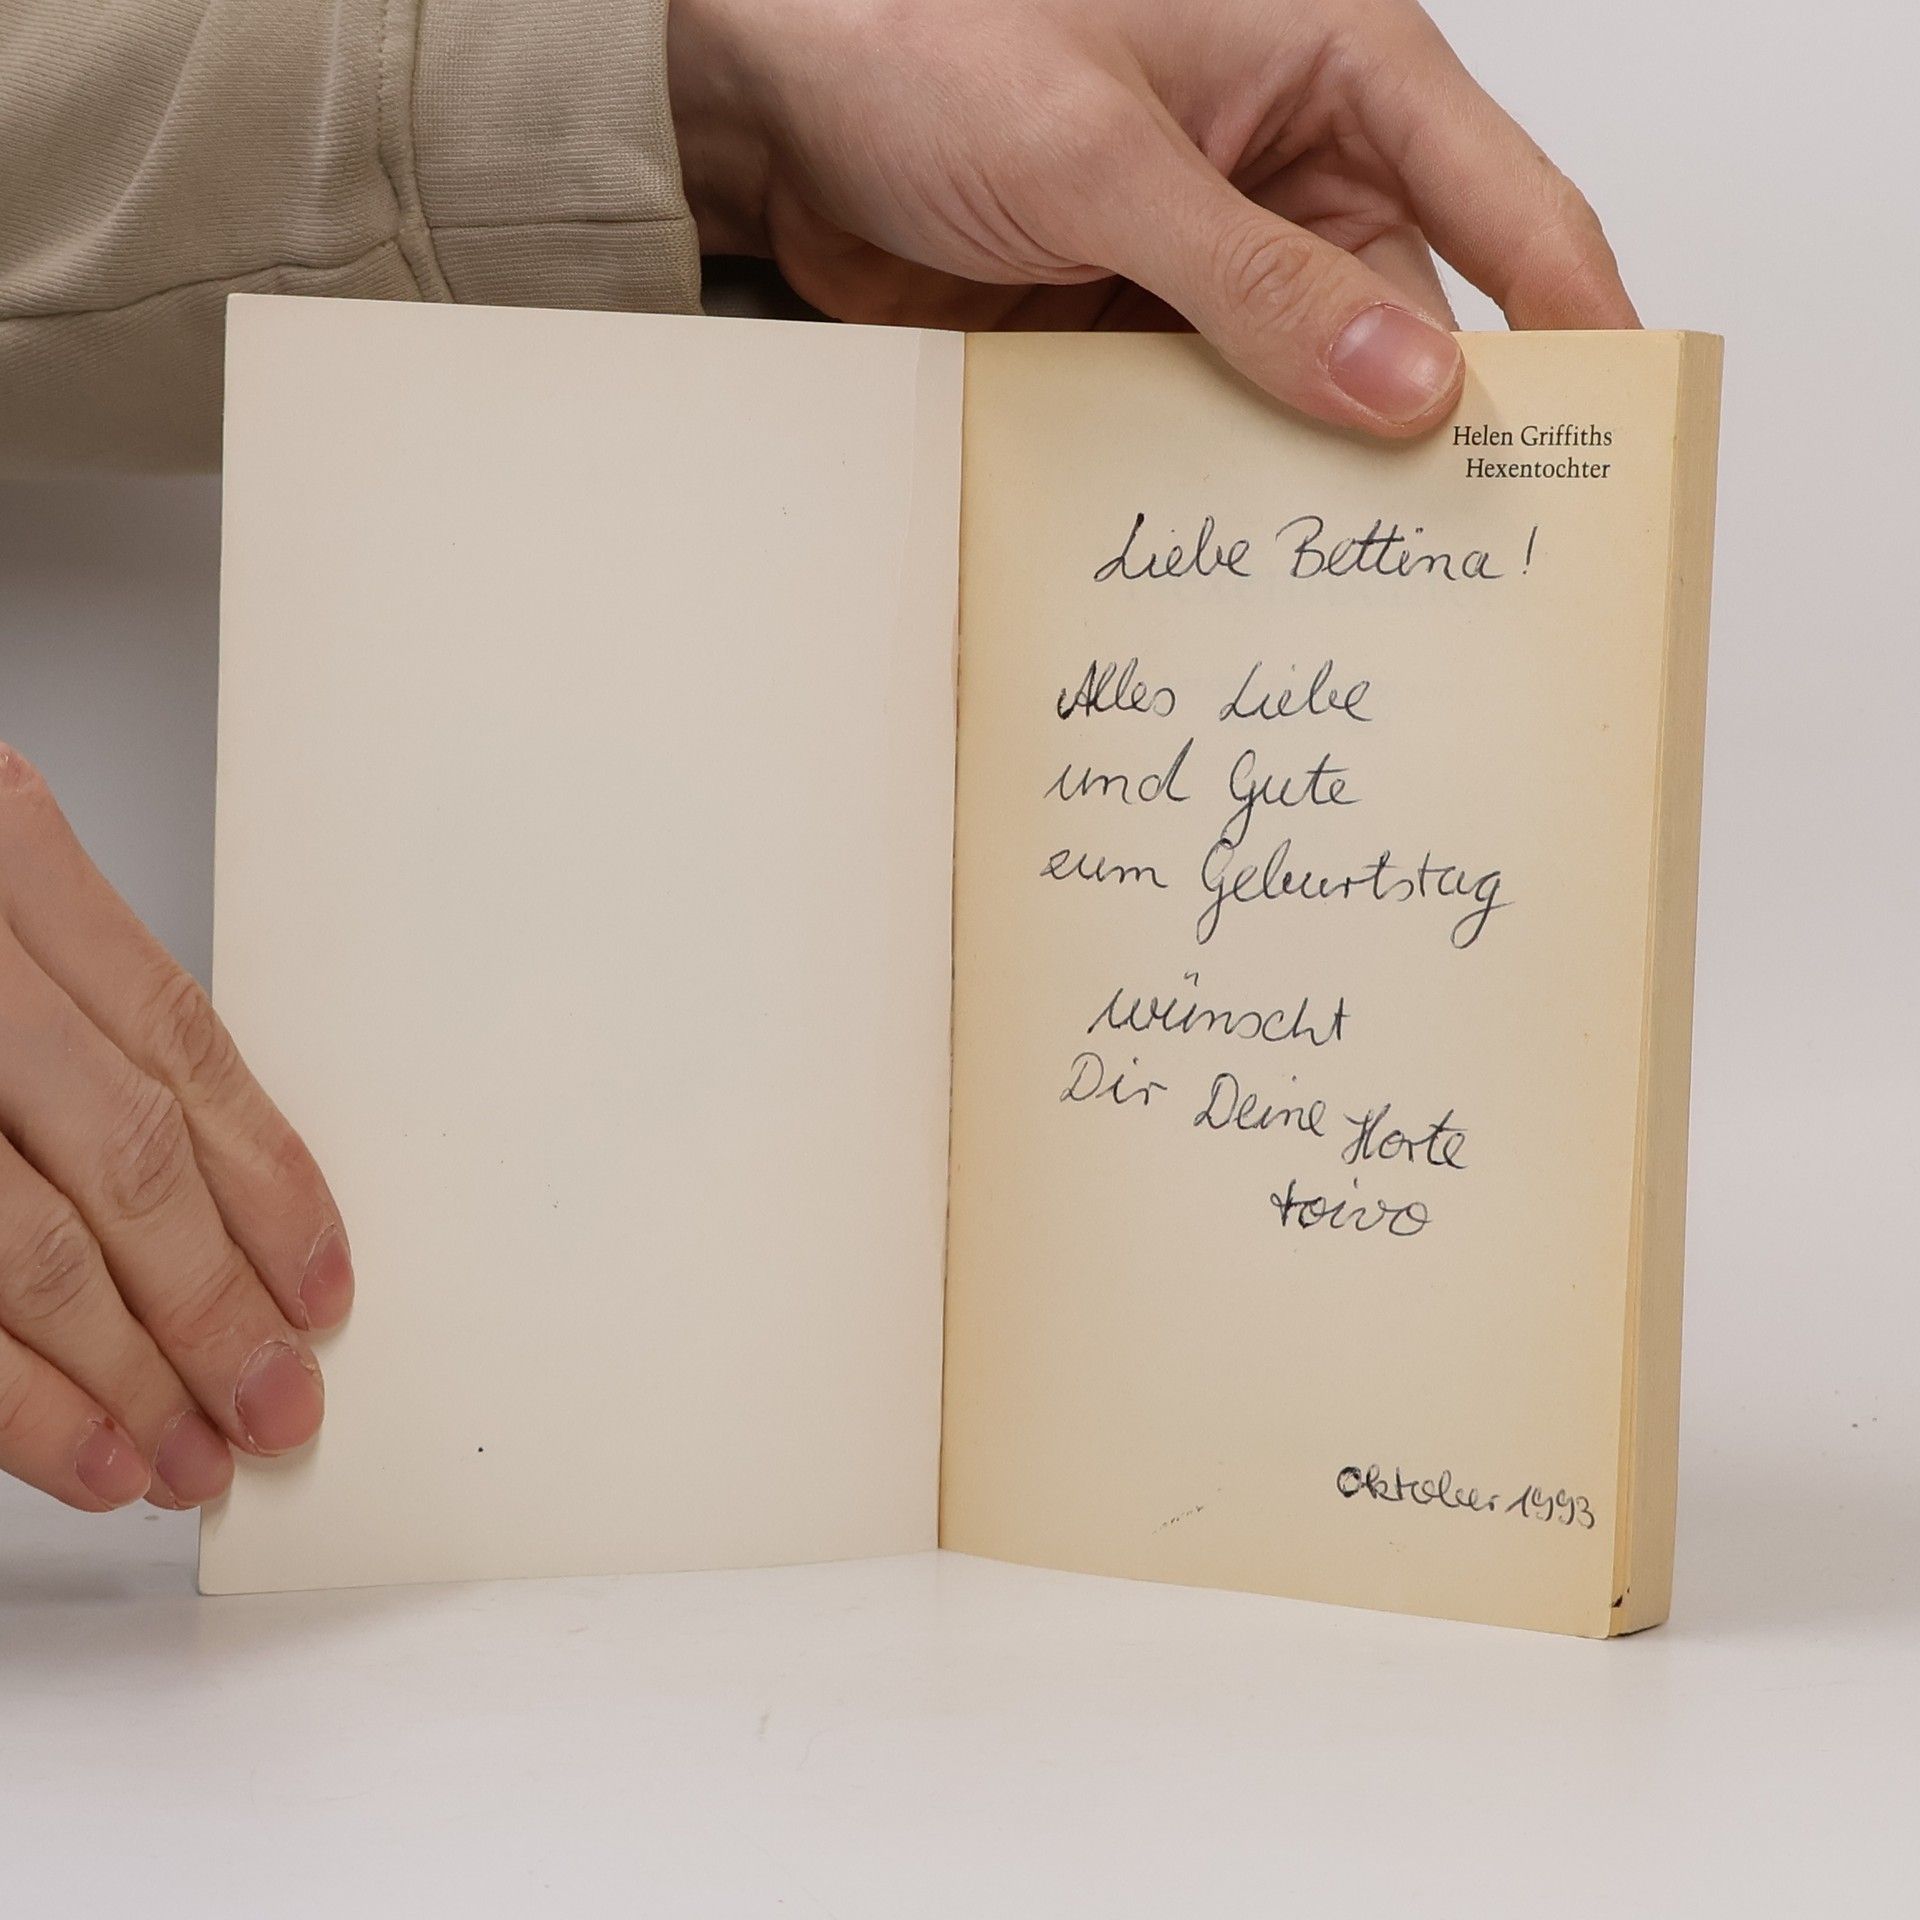 Helen Griffiths
Hexentochter
Liebe Bettina!
Alles Liebe
und Gute
zum Geburtstag
wünscht
Dir Deine Horte
toivo
Oktober 1993